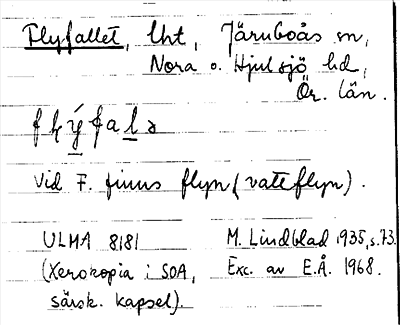 Flyfallet, lht, Järnboås sn,
Nora o. Hjulsjö hd,
Ör. län.
Vid F. finns flyn (vattflyn).
ULMA 8181 M. Lindblad 1935, s.73.
(Xerokopia i SOA, Exc. av E.Å. 1968.
särsk. kapsel).